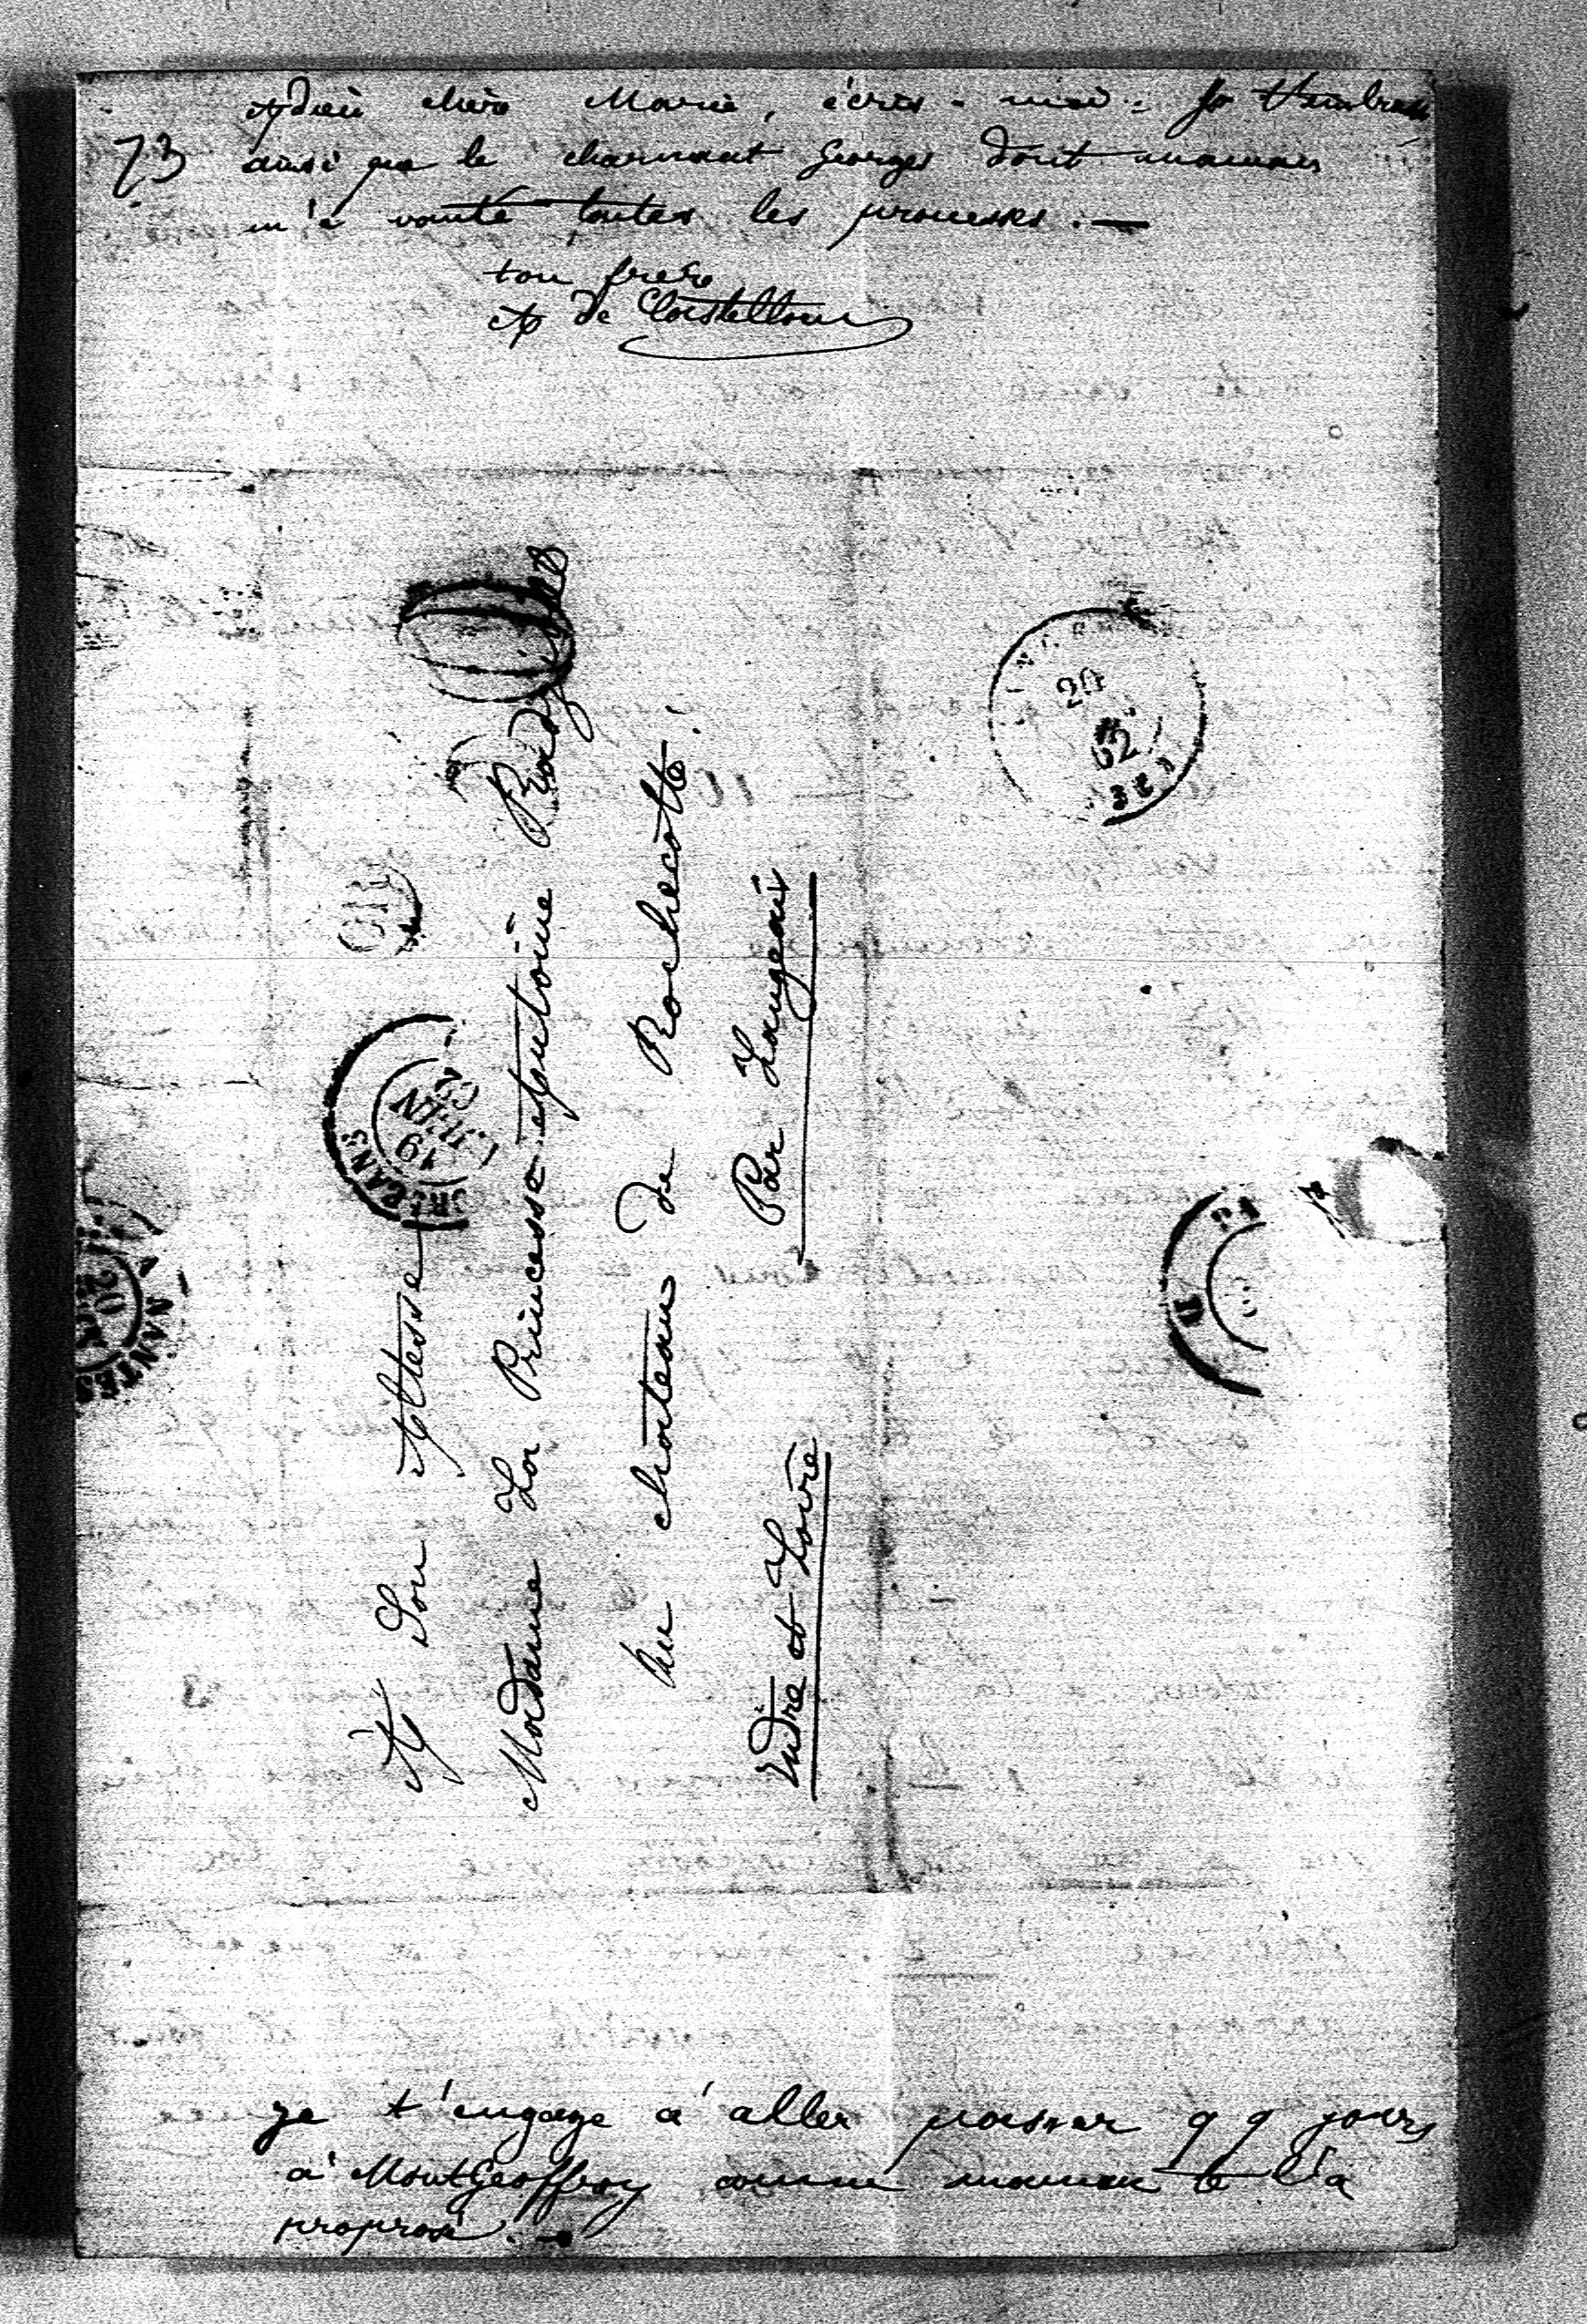 73
Adieu chère Marie, écris-moi. Je t'embrasse
ainsi que le charmant Georges dont maman
m'a vanté toutes les prouesses. —
ton frère
A de Castellane
A Son Altesse
Madame La Princesse Antoine Radziwill
Au château de Rochecotte
Par Langeais
Indre et Loire
ORLEANS
19
JUIN
62
20
62
NANTES
20
je t'engage à aller passer qq jours
à Montgeoffroy comme maman te l'a
proposé. —